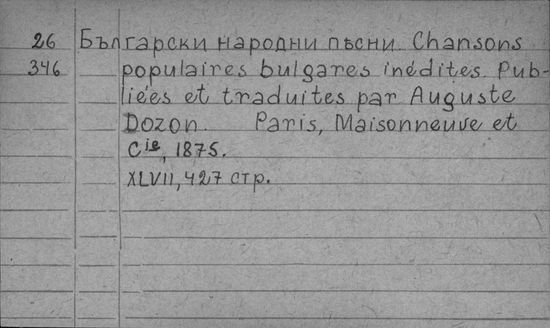 26 Български народни пѣсни. Chansons
346 populaires bulgares inédites. Pub-
liées et traduites par Auguste
Dozon. Paris, Maisonneuve et
Cie, 1875.
XLVII, 427 стр.